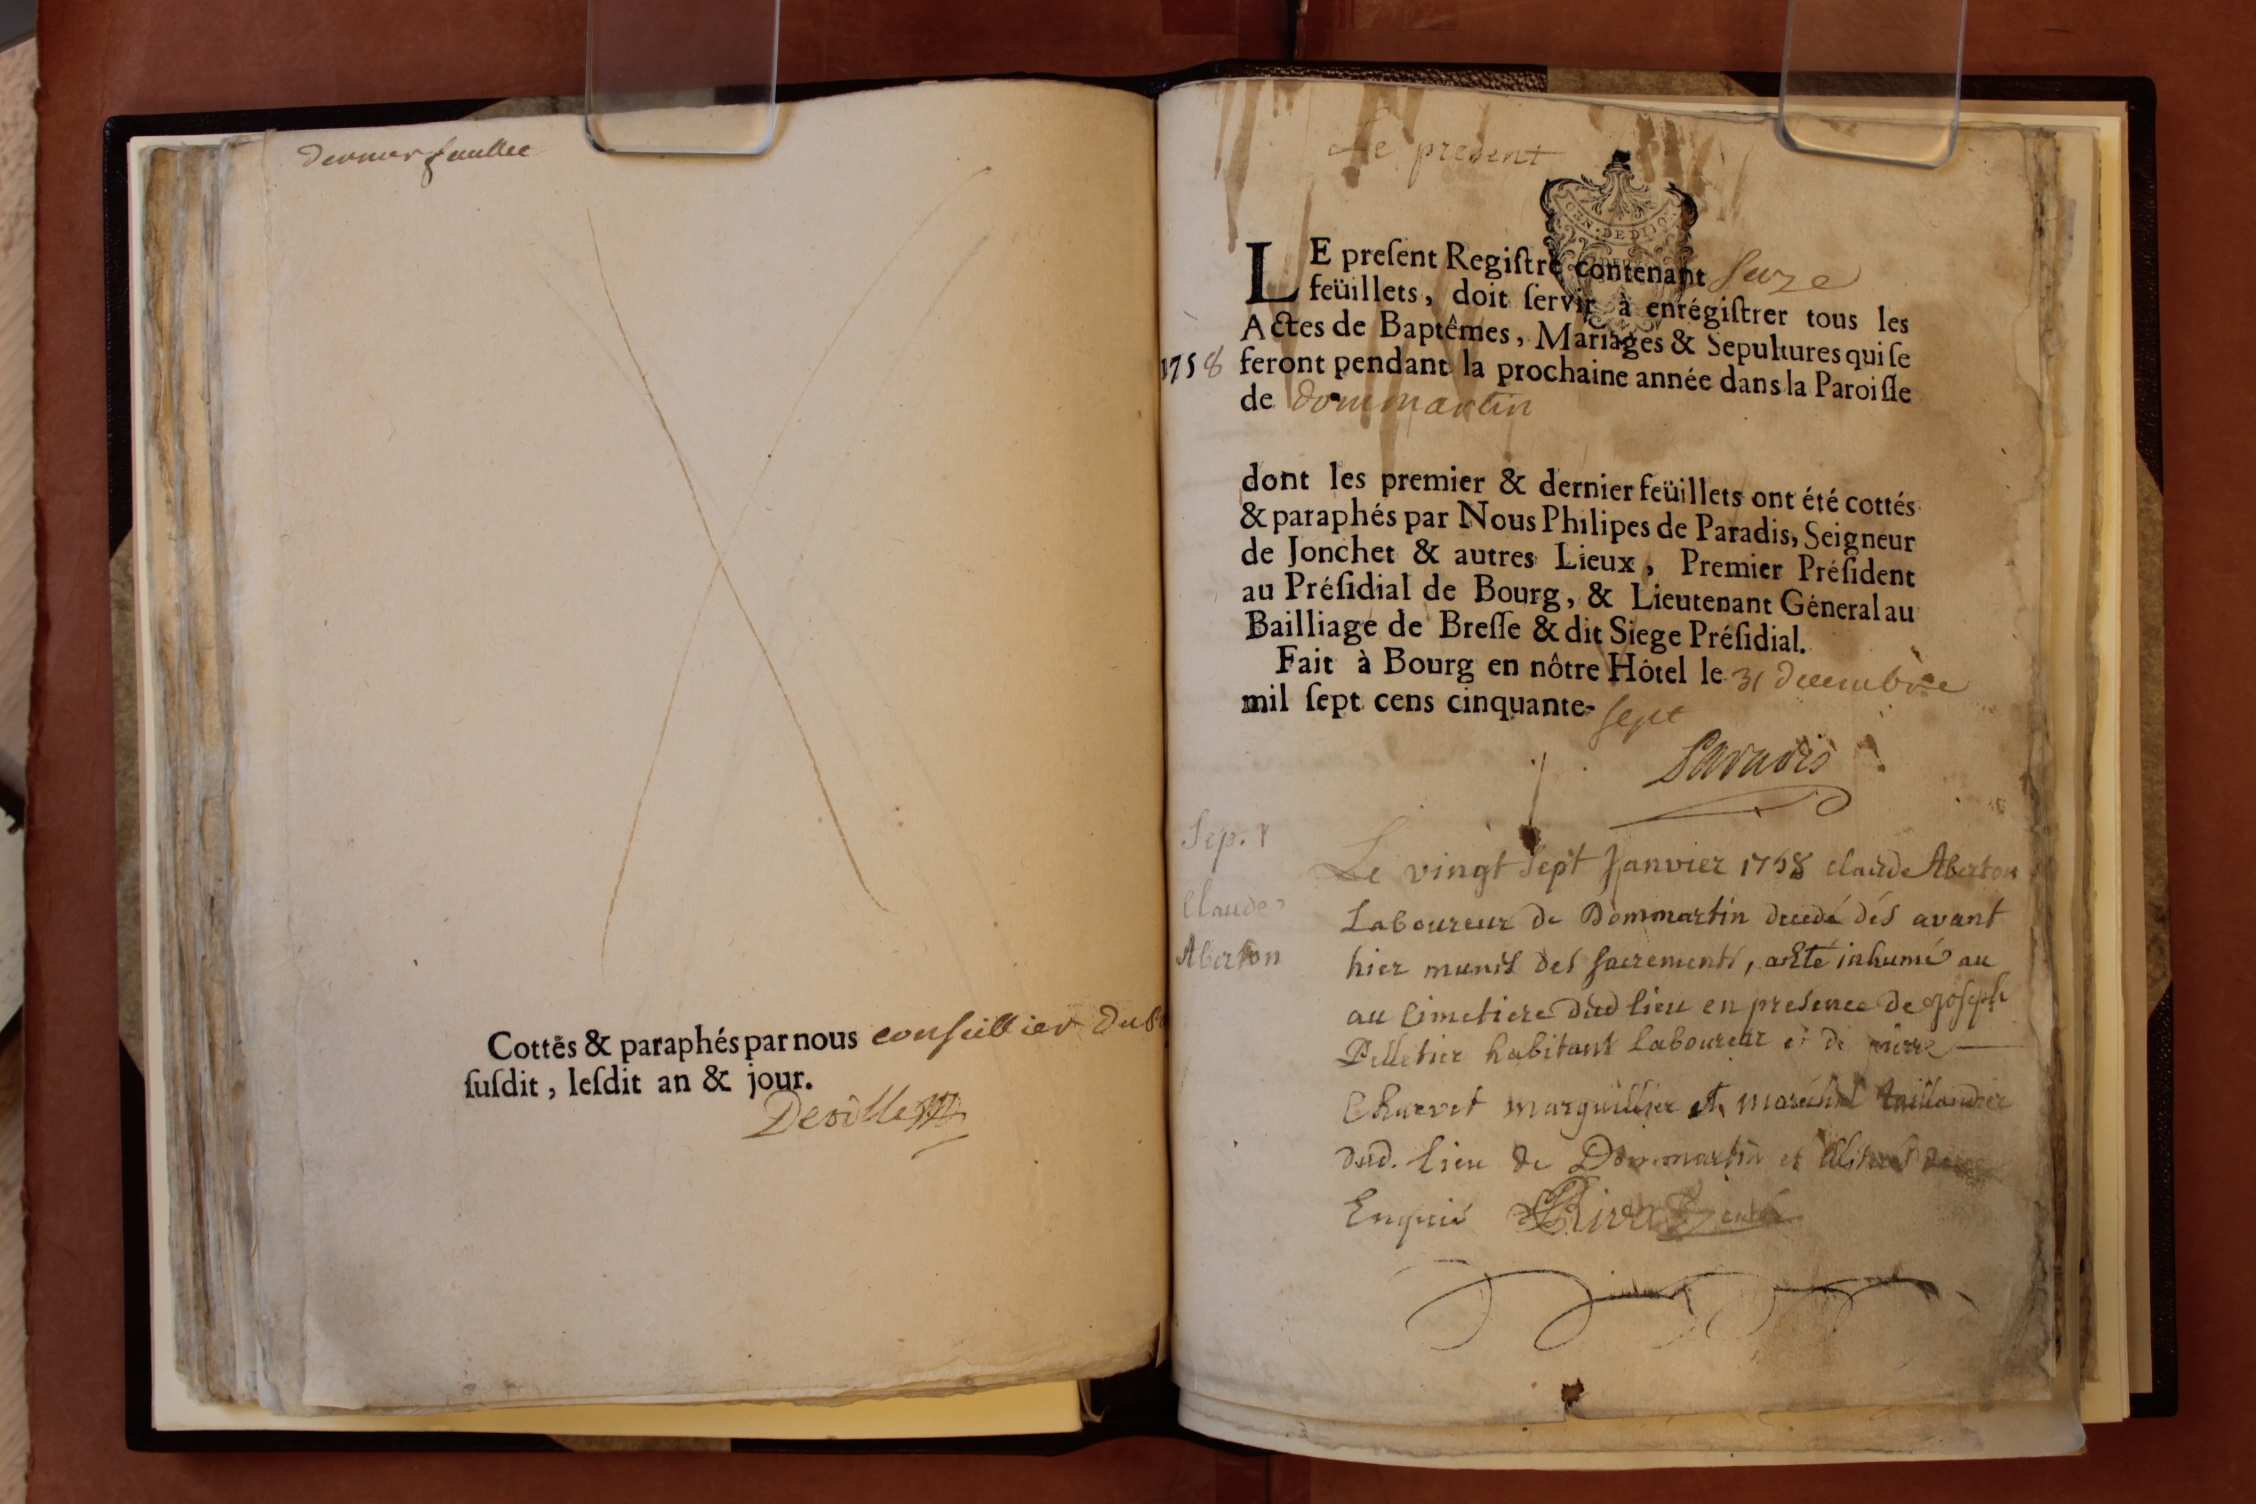 dernier feuillet
Cottés & paraphés par nous conseillier
susdit, lesdit an & jour.
Deville
Le present
GEN. DE DIJON
LE preſent Regiſtre contenant seize
feüillets, doit ſervir à enrégiſtrer tous les
Actes de Baptêmes, Mariages & Sepultures qui ſe
1758 feront pendant la prochaine année dans la Paroiſſe
de dommartin
dont les premier & dernier feüillets ont été cottés
& paraphés par Nous Philipes de Paradis, Seigneur
de Jonchet & autres Lieux, Premier Préſident
au Préſidial de Bourg, & Lieutenant Géneral au
Bailliage de Breſſe & dit Siege Préſidial.
Fait à Bourg en nôtre Hôtel le 31 decembre
mil ſept cens cinquante-sept
Paradis
Sep. 1
Claude
Aberton
Le vingt sept Janvier 1758 claude Aberton
Laboureur de Dommartin decedé dés avant
hier munis des sacrements, a eté inhumé au
au Cimetiere dud lieu en presence de joseph
Pelletier habitant laboureur et de pierre
Charvet marguillier et maréchal taillandier
dud. lieu de Dommartin et
Enquis